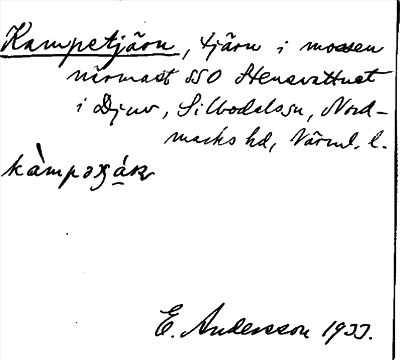 Kampetjärn, tjärn i mossen
närmast SSO Stensvattnet
i Djuv, Silbodalssn, Nord-
marks hd, Värml. l.
E. Andersson 1933.